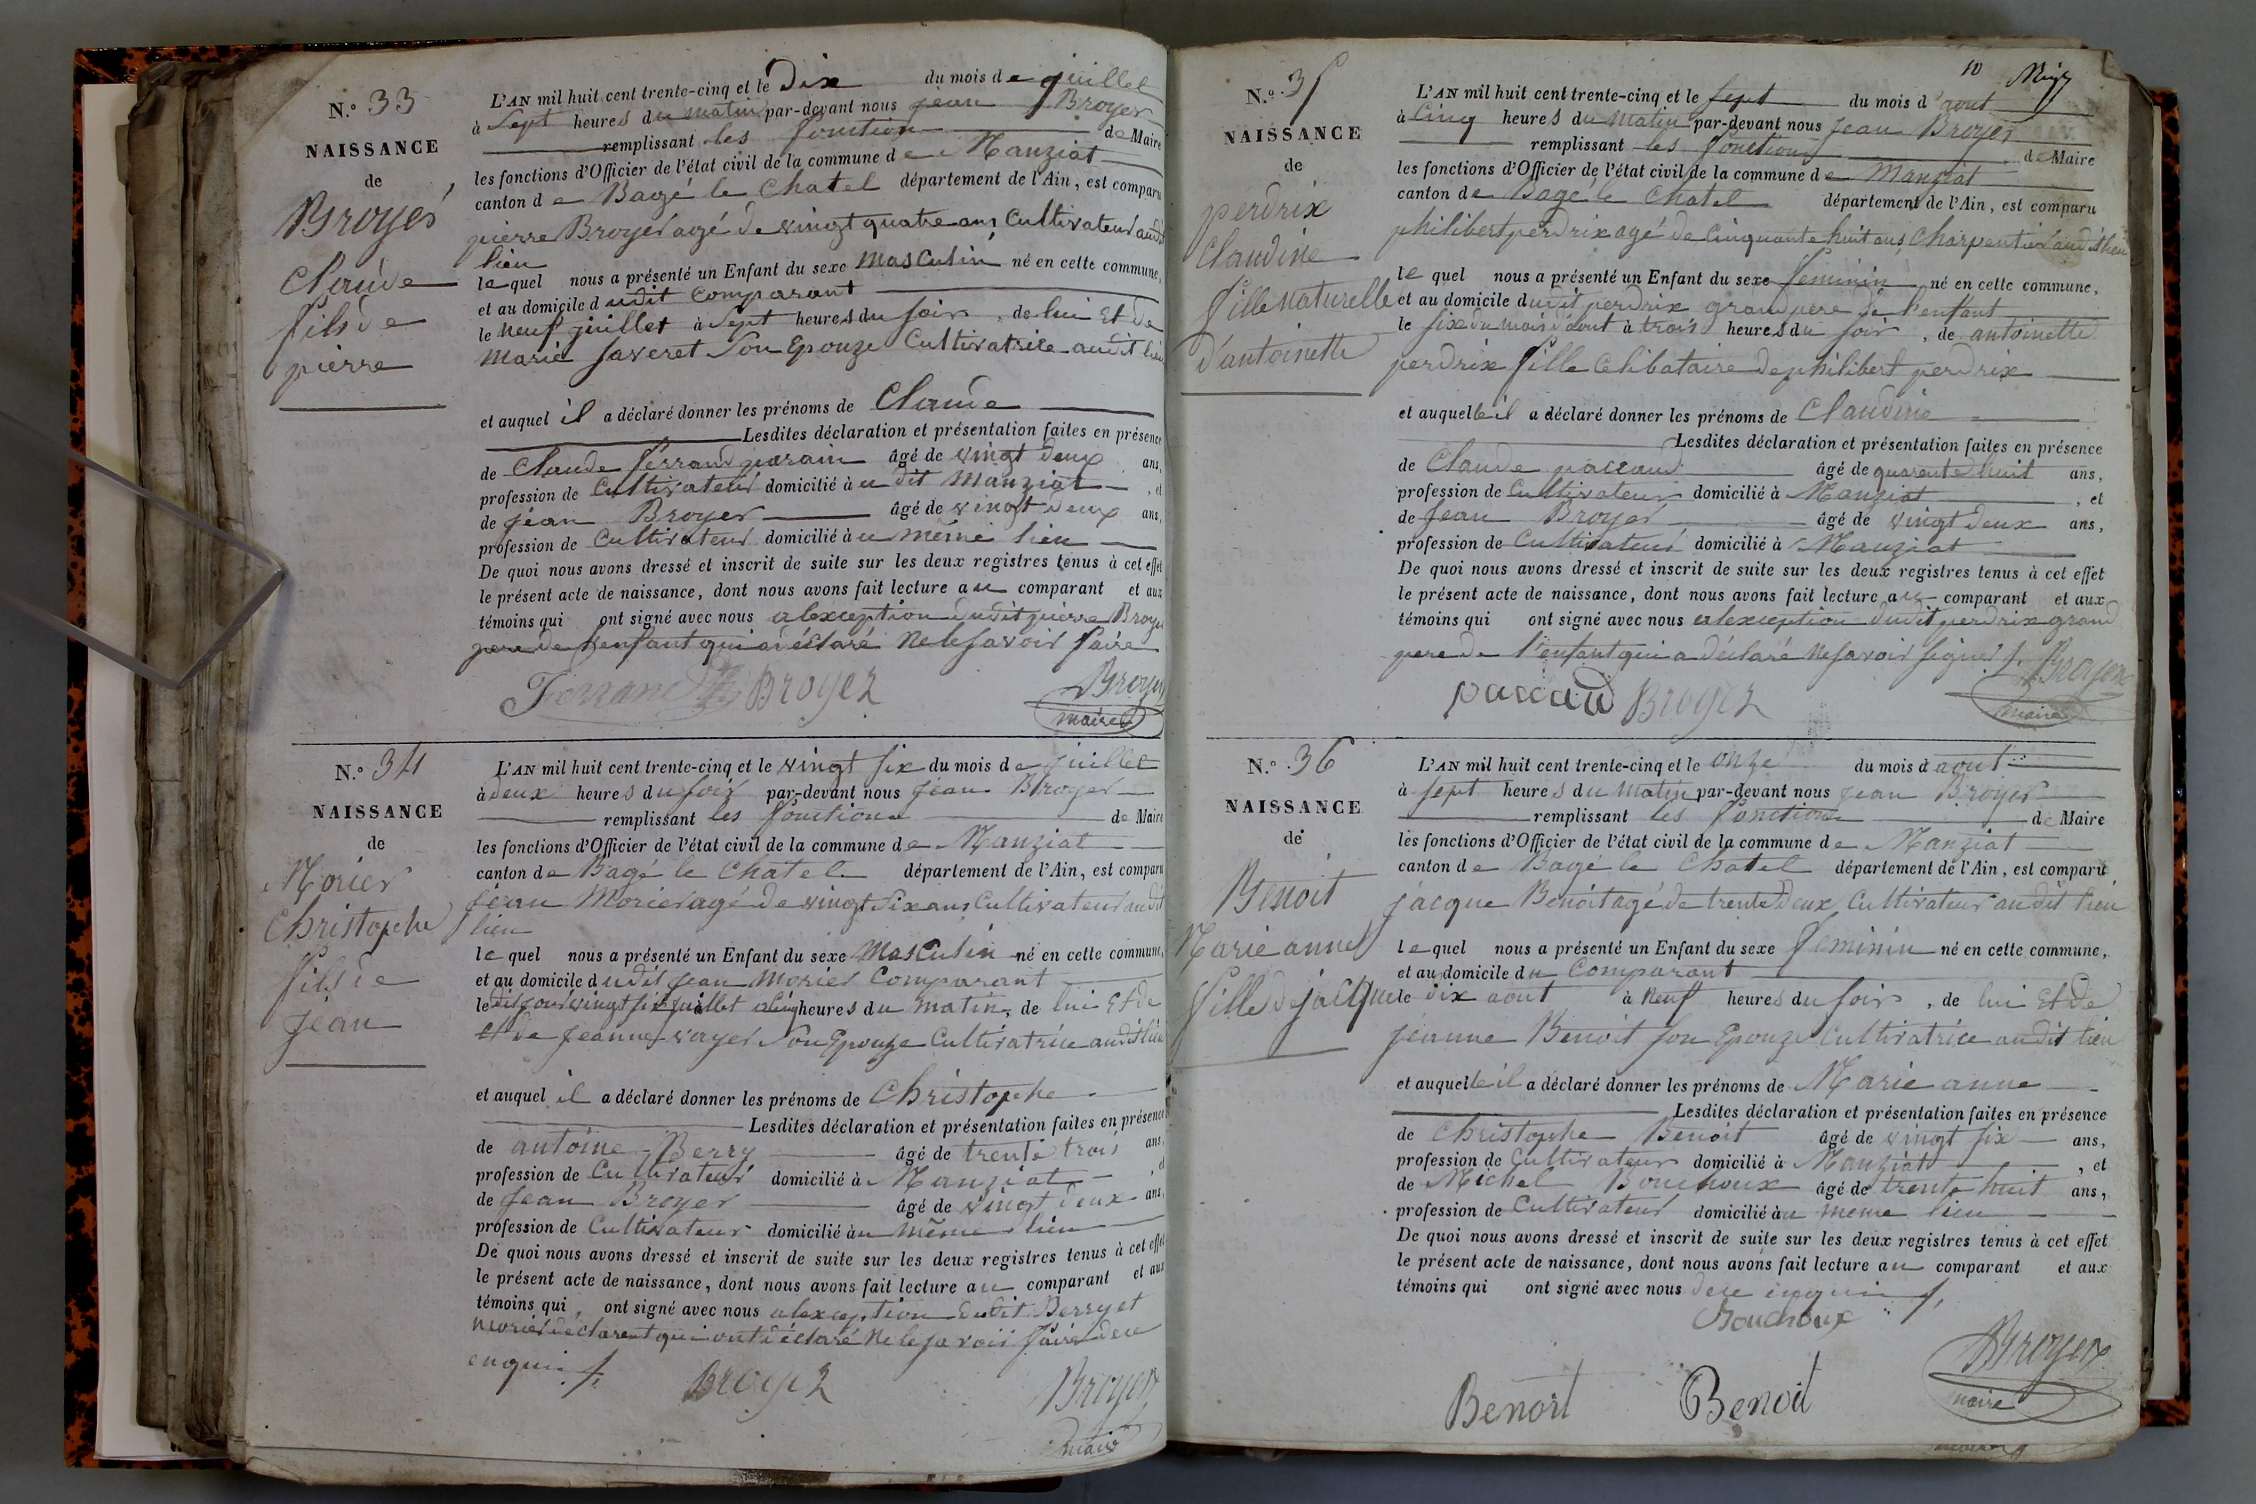 N.º 33
NAISSANCE
de
Broyer
Claude
fils de
pierre
L'AN mil huit cent trente-cinq et le Dix du mois de juillet
à Sept heures du matin par-devant nous jean Broyer
remplissant les fonction de Maire
les fonctions d'Officier de l'état civil de la commune de Manziat
canton de Bagé le Chatel département de l'Ain, est comparu
pierre Broyer agé de vingt quatre ans Cultivateur audit
lieu
lequel nous a présenté un Enfant du sexe Masculin né en cette commune,
et au domicile dudit Comparant
le Neuf juillet à Sept heures du soir, de lui Et de
Marie faveret Son Epouze Cultivatrice audit lieu
et auquel il a déclaré donner les prénoms de Claude
Lesdites déclaration et présentation faites en présence
de Claude ferrand parain âgé de vingt deux ans,
profession de Cultivateur domicilié àu dit Manziat, et
de jean Broyer âgé de vingt deux ans,
profession de Cultivateur domicilié àu même lieu
De quoi nous avons dressé et inscrit de suite sur les deux registres tenus à cet effet
le présent acte de naissance, dont nous avons fait lecture au comparant et aux
témoins qui ont signé avec nous alexception dudit pierre Broyer
pere de l'enfant qui a déclaré Ne le savoir faire
Ferrand Broyer Broyer
maire
N.º 34
NAISSANCE
de
Morier
Christophe
fils de
jean
L'AN mil huit cent trente-cinq et le vingt six du mois de juillet
à deux heures du soir par-devant nous jean Broyer
remplissant les fonctions de Maire
les fonctions d'Officier de l'état civil de la commune de Manziat
canton de Bagé le Chatel département de l'Ain, est comparu
jean Morier agé de vingt six ans Cultivateur audit
lieu
lequel nous a présenté un Enfant du sexe Masculin né en cette commune,
et au domicile dudit jean Morier Comparant
le dit jour vingt six juillet a cinq heures du matin, de lui Et de
et de jeanne voyer Son Epouze Cultivatrice audit lieu
et auquel il a déclaré donner les prénoms de Christophe
Lesdites déclaration et présentation faites en présence
de antoine Berry âgé de trente trois ans,
profession de Cultivateur domicilié à Manziat, et
de jean Broyer âgé de vingt deux ans,
profession de Cultivateur domicilié àu même lieu
De quoi nous avons dressé et inscrit de suite sur les deux registres tenus à cet effet
le présent acte de naissance, dont nous avons fait lecture au comparant et aux
témoins qui, ont signé avec nous alexception dudit Berry et
morier déclarent qui ont déclaré Ne le savoir faire de ce
enquis
Broyer Broyer
maire
10
N.º 35
NAISSANCE
de
perdrix
Claudine
fille naturelle
d'antoinette
L'AN mil huit cent trente-cinq et le sept du mois d'aout
à Cinq heures du Matin par-devant nous jean Broyer
remplissant les fonctions de Maire
les fonctions d'Officier de l'état civil de la commune de Manziat
canton de Bagé le Chatel département de l'Ain, est comparu
philibert perdrix agé de Cinquante huit ans Charpentier audit lieu
lequel nous a présenté un Enfant du sexe feminin né en cette commune,
et au domicile dudit perdrix grand pere de l'enfant
le six du mois d'aout à trois heures du soir, de antoinette
perdrix fille Celibataire de philibert perdrix
et auquelle il a déclaré donner les prénoms de Claudine
Lesdites déclaration et présentation faites en présence
de Claude paccaud âgé de quarente huit ans,
profession de Cultivateur domicilié à Manziat, et
de jean Broyer âgé de vingt deux ans,
profession de Cultivateur domicilié à Manziat
De quoi nous avons dressé et inscrit de suite sur les deux registres tenus à cet effet
le présent acte de naissance, dont nous avons fait lecture au comparant et aux
témoins qui ont signé avec nous alexception dudit perdrix grand
pere de l'enfant qui a déclaré Ne savoir signer
paccaud Broyer Broyer
maire
N.º 36
NAISSANCE
de
Benoit
Marie anne
fille de jacque
L'AN mil huit cent trente-cinq et le onze du mois d aout
à sept heures du Matin par-devant nous jean Broyer
remplissant les fonctions de Maire
les fonctions d'Officier de l'état civil de la commune de Manziat
canton de Bagé le Chatel département de l'Ain, est comparu
jacque Benoit agé de trente deux Cultivateur audit lieu
lequel nous a présenté un Enfant du sexe feminin né en cette commune,
et au domicile du Comparant
le dix aout à Neuf heures du soir, de lui Et de
jeanne Benoit son Epouze Cultivatrice audit lieu
et auquelle il a déclaré donner les prénoms de Marie anne
Lesdites déclaration et présentation faites en présence
de Christophe Benoit âgé de vingt six ans,
profession de Cultivateur domicilié à Manziat, et
de Michel Bouchoux âgé de trente huit ans,
profession de Cultivateur domicilié àu même lieu
De quoi nous avons dressé et inscrit de suite sur les deux registres tenus à cet effet
le présent acte de naissance, dont nous avons fait lecture au comparant et aux
témoins qui ont signé avec nous de ce enquis
Bouchoux
Broyer
maire
Benoit Benoit